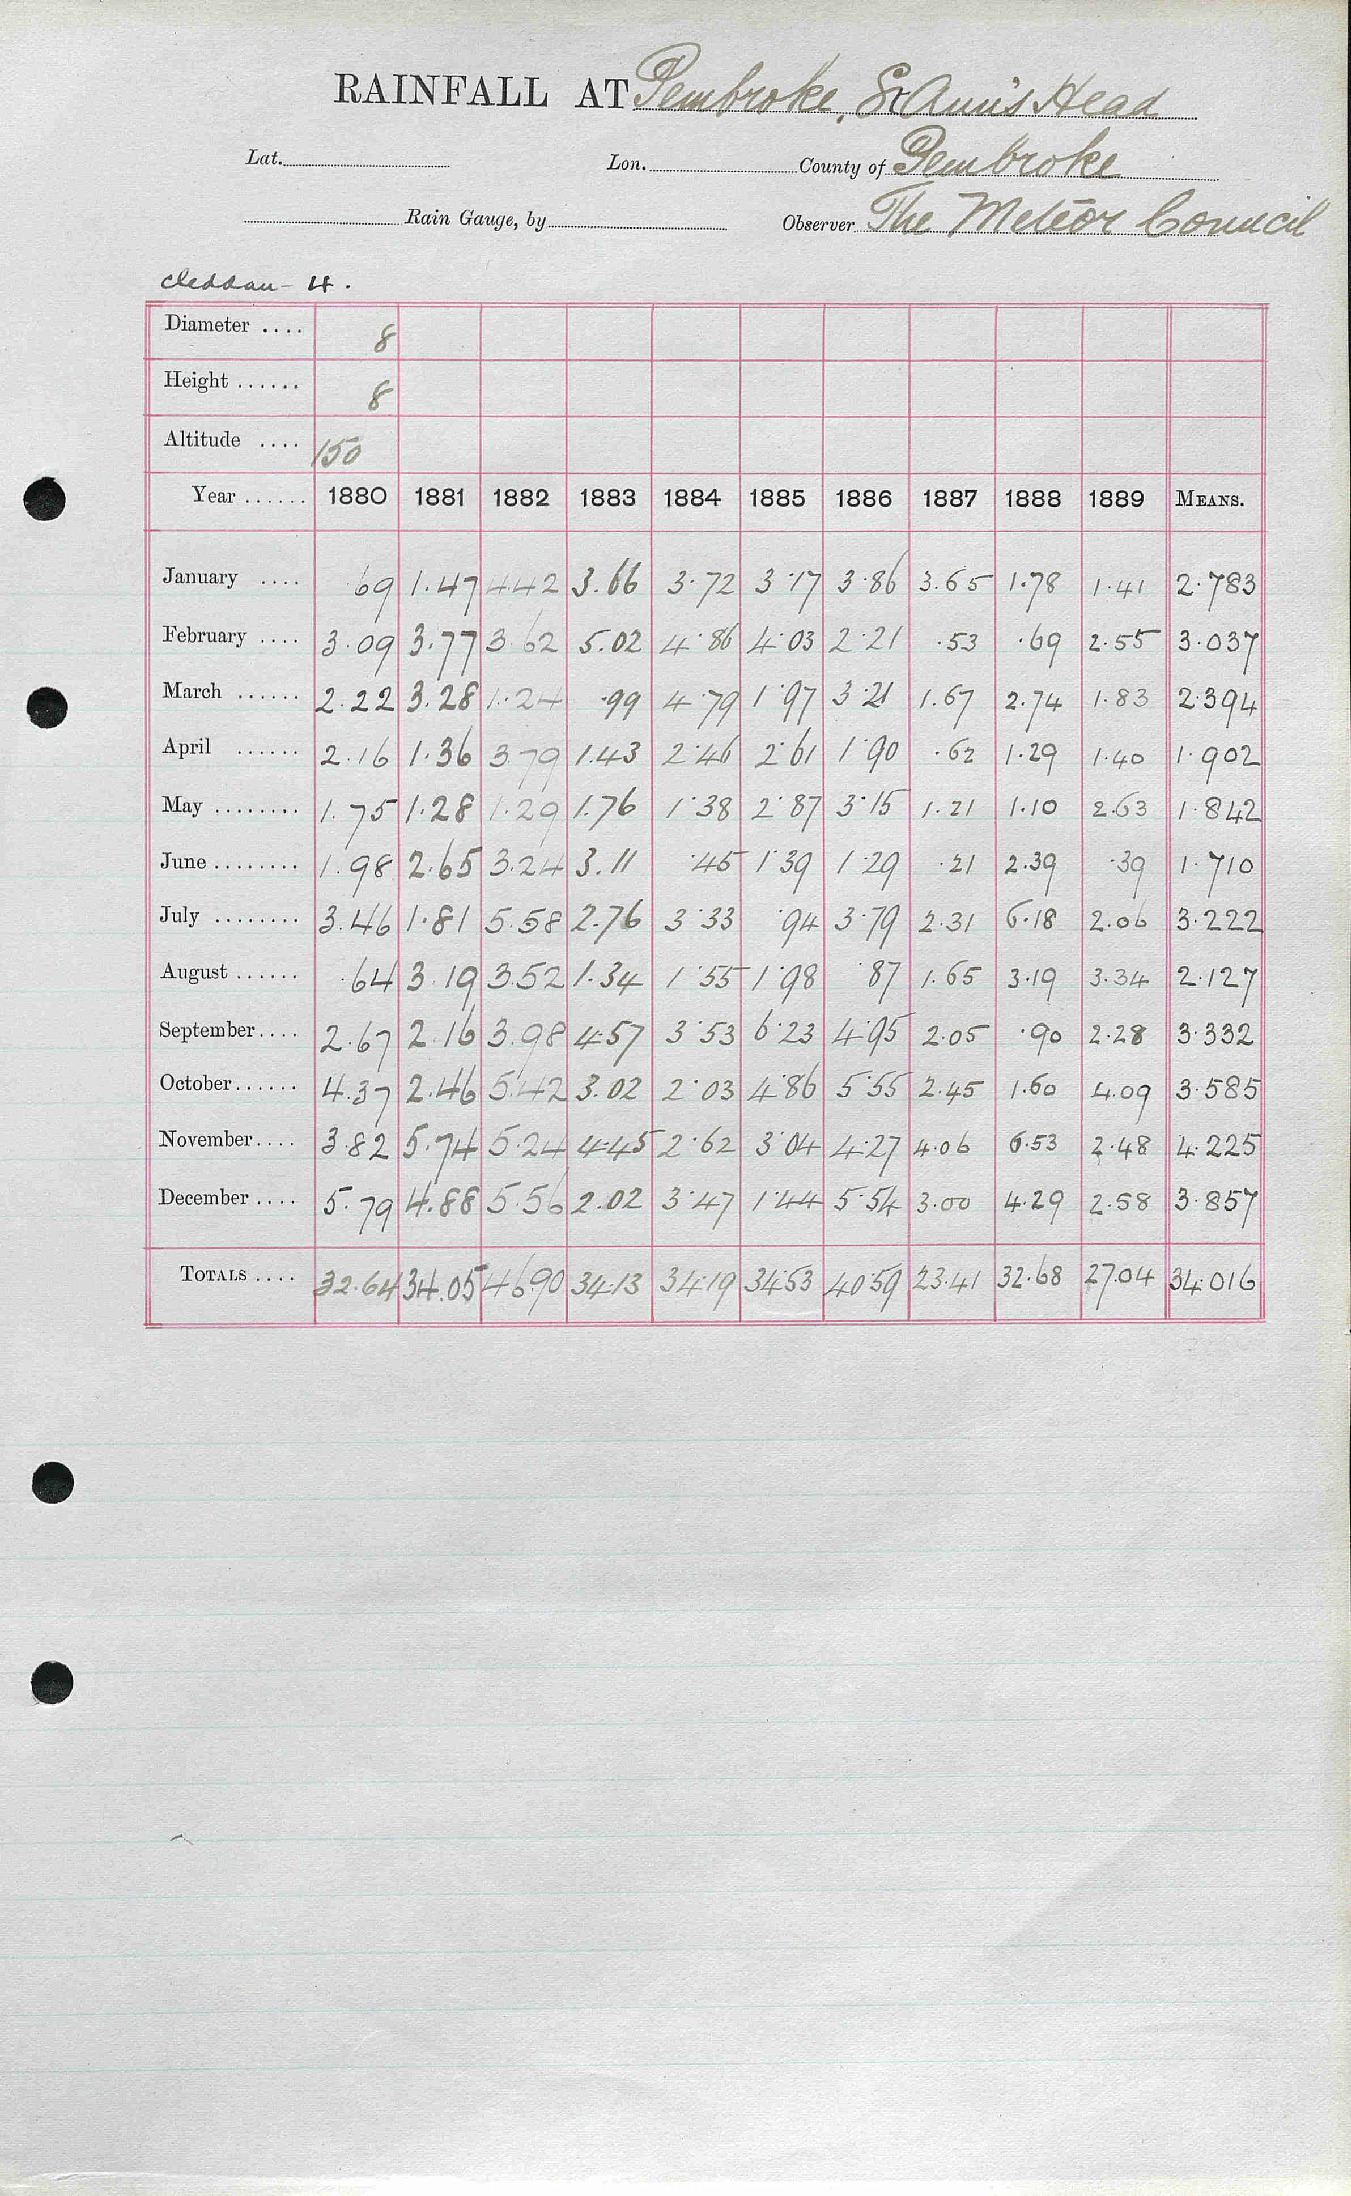 RAINFALL AT Pembroke, St Ann's Head
Lat. Lon. County of Pembroke
Rain Gauge, by Observer The Meteor Council
Cleddau - 4.
Diameter .... 8
Height ...... 8
Altitude .... 150
Year ...... 1880 1881 1882 1883 1884 1885 1886 1887 1888 1889 MEANS.
January .... .69 1.47 4.42 3.66 3.72 3.17 3.86 3.65 1.78 1.41 2.783
February .... 3.09 3.77 3.62 5.02 4.86 4.03 2.21 .53 .69 2.55 3.037
March ...... 2.22 3.28 1.24 .99 4.79 1.97 3.21 1.67 2.74 1.83 2.394
April ...... 2.16 1.36 3.79 1.43 2.46 2.61 1.90 .62 1.29 1.40 1.902
May ........ 1.75 1.28 1.29 1.76 1.38 2.87 3.15 1.21 1.10 2.63 1.842
June ........ 1.98 2.65 3.24 3.11 .45 1.39 1.29 .21 2.39 .39 1.710
July ........ 3.46 1.81 5.58 2.76 3.33 .94 3.79 2.31 6.18 2.06 3.222
August ...... .64 3.19 3.52 1.34 1.55 1.98 .87 1.65 3.19 3.34 2.127
September.... 2.67 2.16 3.98 4.57 3.53 6.23 4.95 2.05 .90 2.28 3.332
October...... 4.37 2.46 5.42 3.02 2.03 4.86 5.55 2.45 1.60 4.09 3.585
November.... 3.82 5.74 5.24 4.45 2.62 3.04 4.27 4.06 6.53 2.48 4.225
December .... 5.79 4.88 5.56 2.02 3.47 1.44 5.54 3.00 4.29 2.58 3.857
TOTALS .... 32.64 34.05 46.90 34.13 34.19 34.53 40.59 23.41 32.68 27.04 34.016